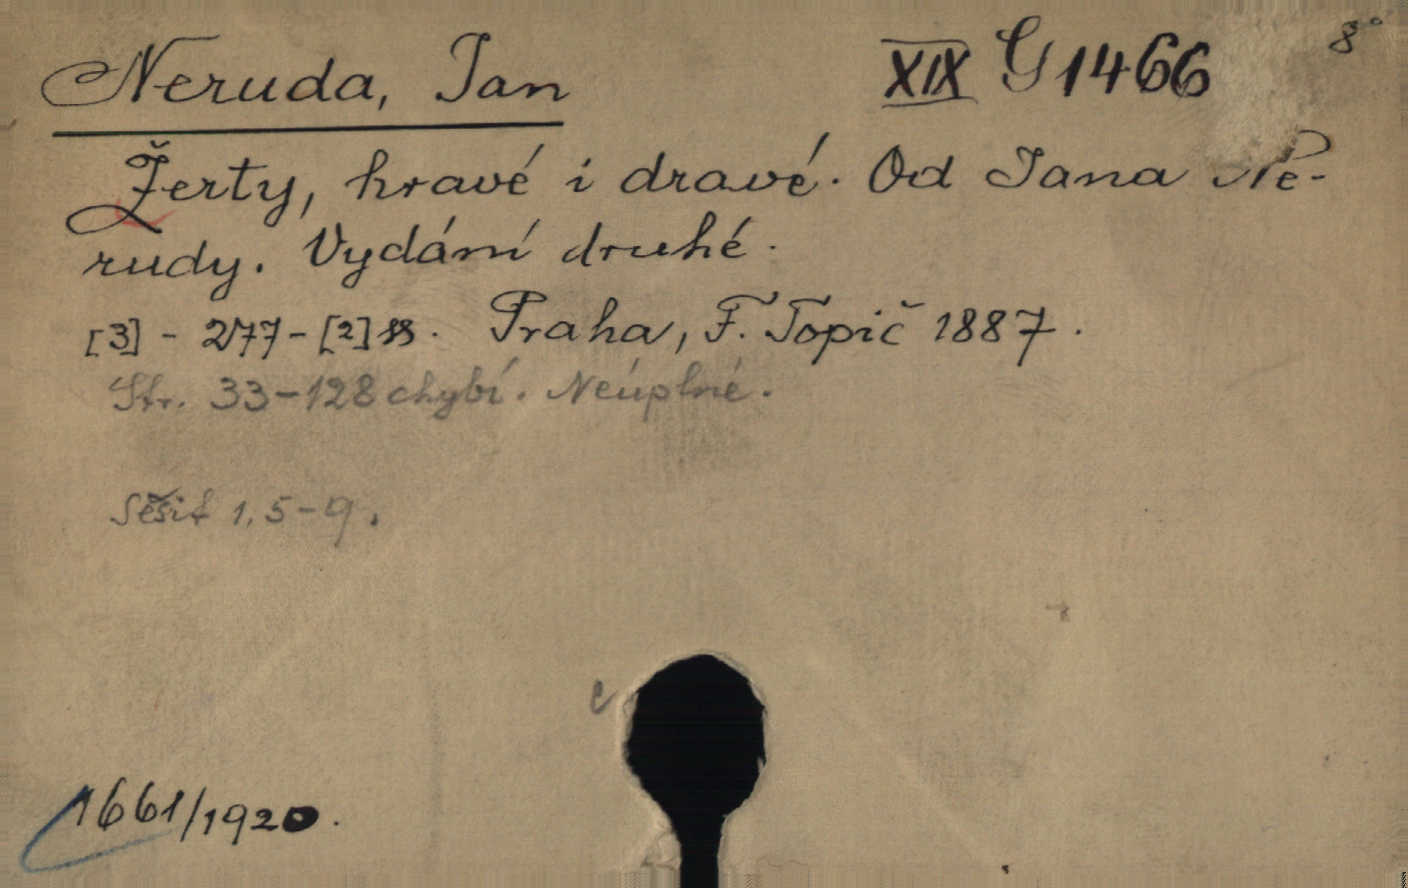 Neruda, Jan XIX G 1466 8°
Žerty, hravé i dravé. Od Jana Ne-
rudy. Vydání druhé.
[3] - 277 - [2] ss. Praha, F. Topič 1887.
Str. 33-128 chybí. Neúplné.
Sešit 1, 5-9.
e
1661/1920.